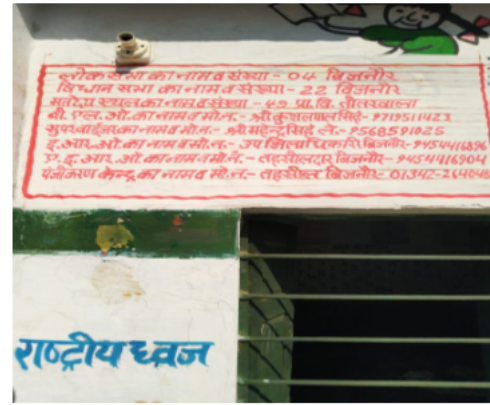 लोक सभा का नाम व संख्या - 04 बिजनौर
विधान सभा का नाम व संख्या - 22 बिजनौर
मतदेय स्थल का नाम व संख्या - 49 प्रा. वि. तीतरवाला
बी. एल. ओ. का नाम व मो.न. - श्री कुशलपाल सिंह - 9719511423
सुपरवाईजर का नाम व मो.न. - श्री महेन्द्र सिंह ले. - 9568591025
इ. आर. ओ. का नाम व मो.न. - उप जिलाधिकारी बिजनौर - 9454416896
ए. इ. आर. ओ. का नाम व मो.न. - तहसीलदार बिजनौर - 9454416904
पंजीकरण केन्द्र का नाम व मो.न. - तहसील बिजनौर - 01342-264048
राष्ट्रीय ध्वज